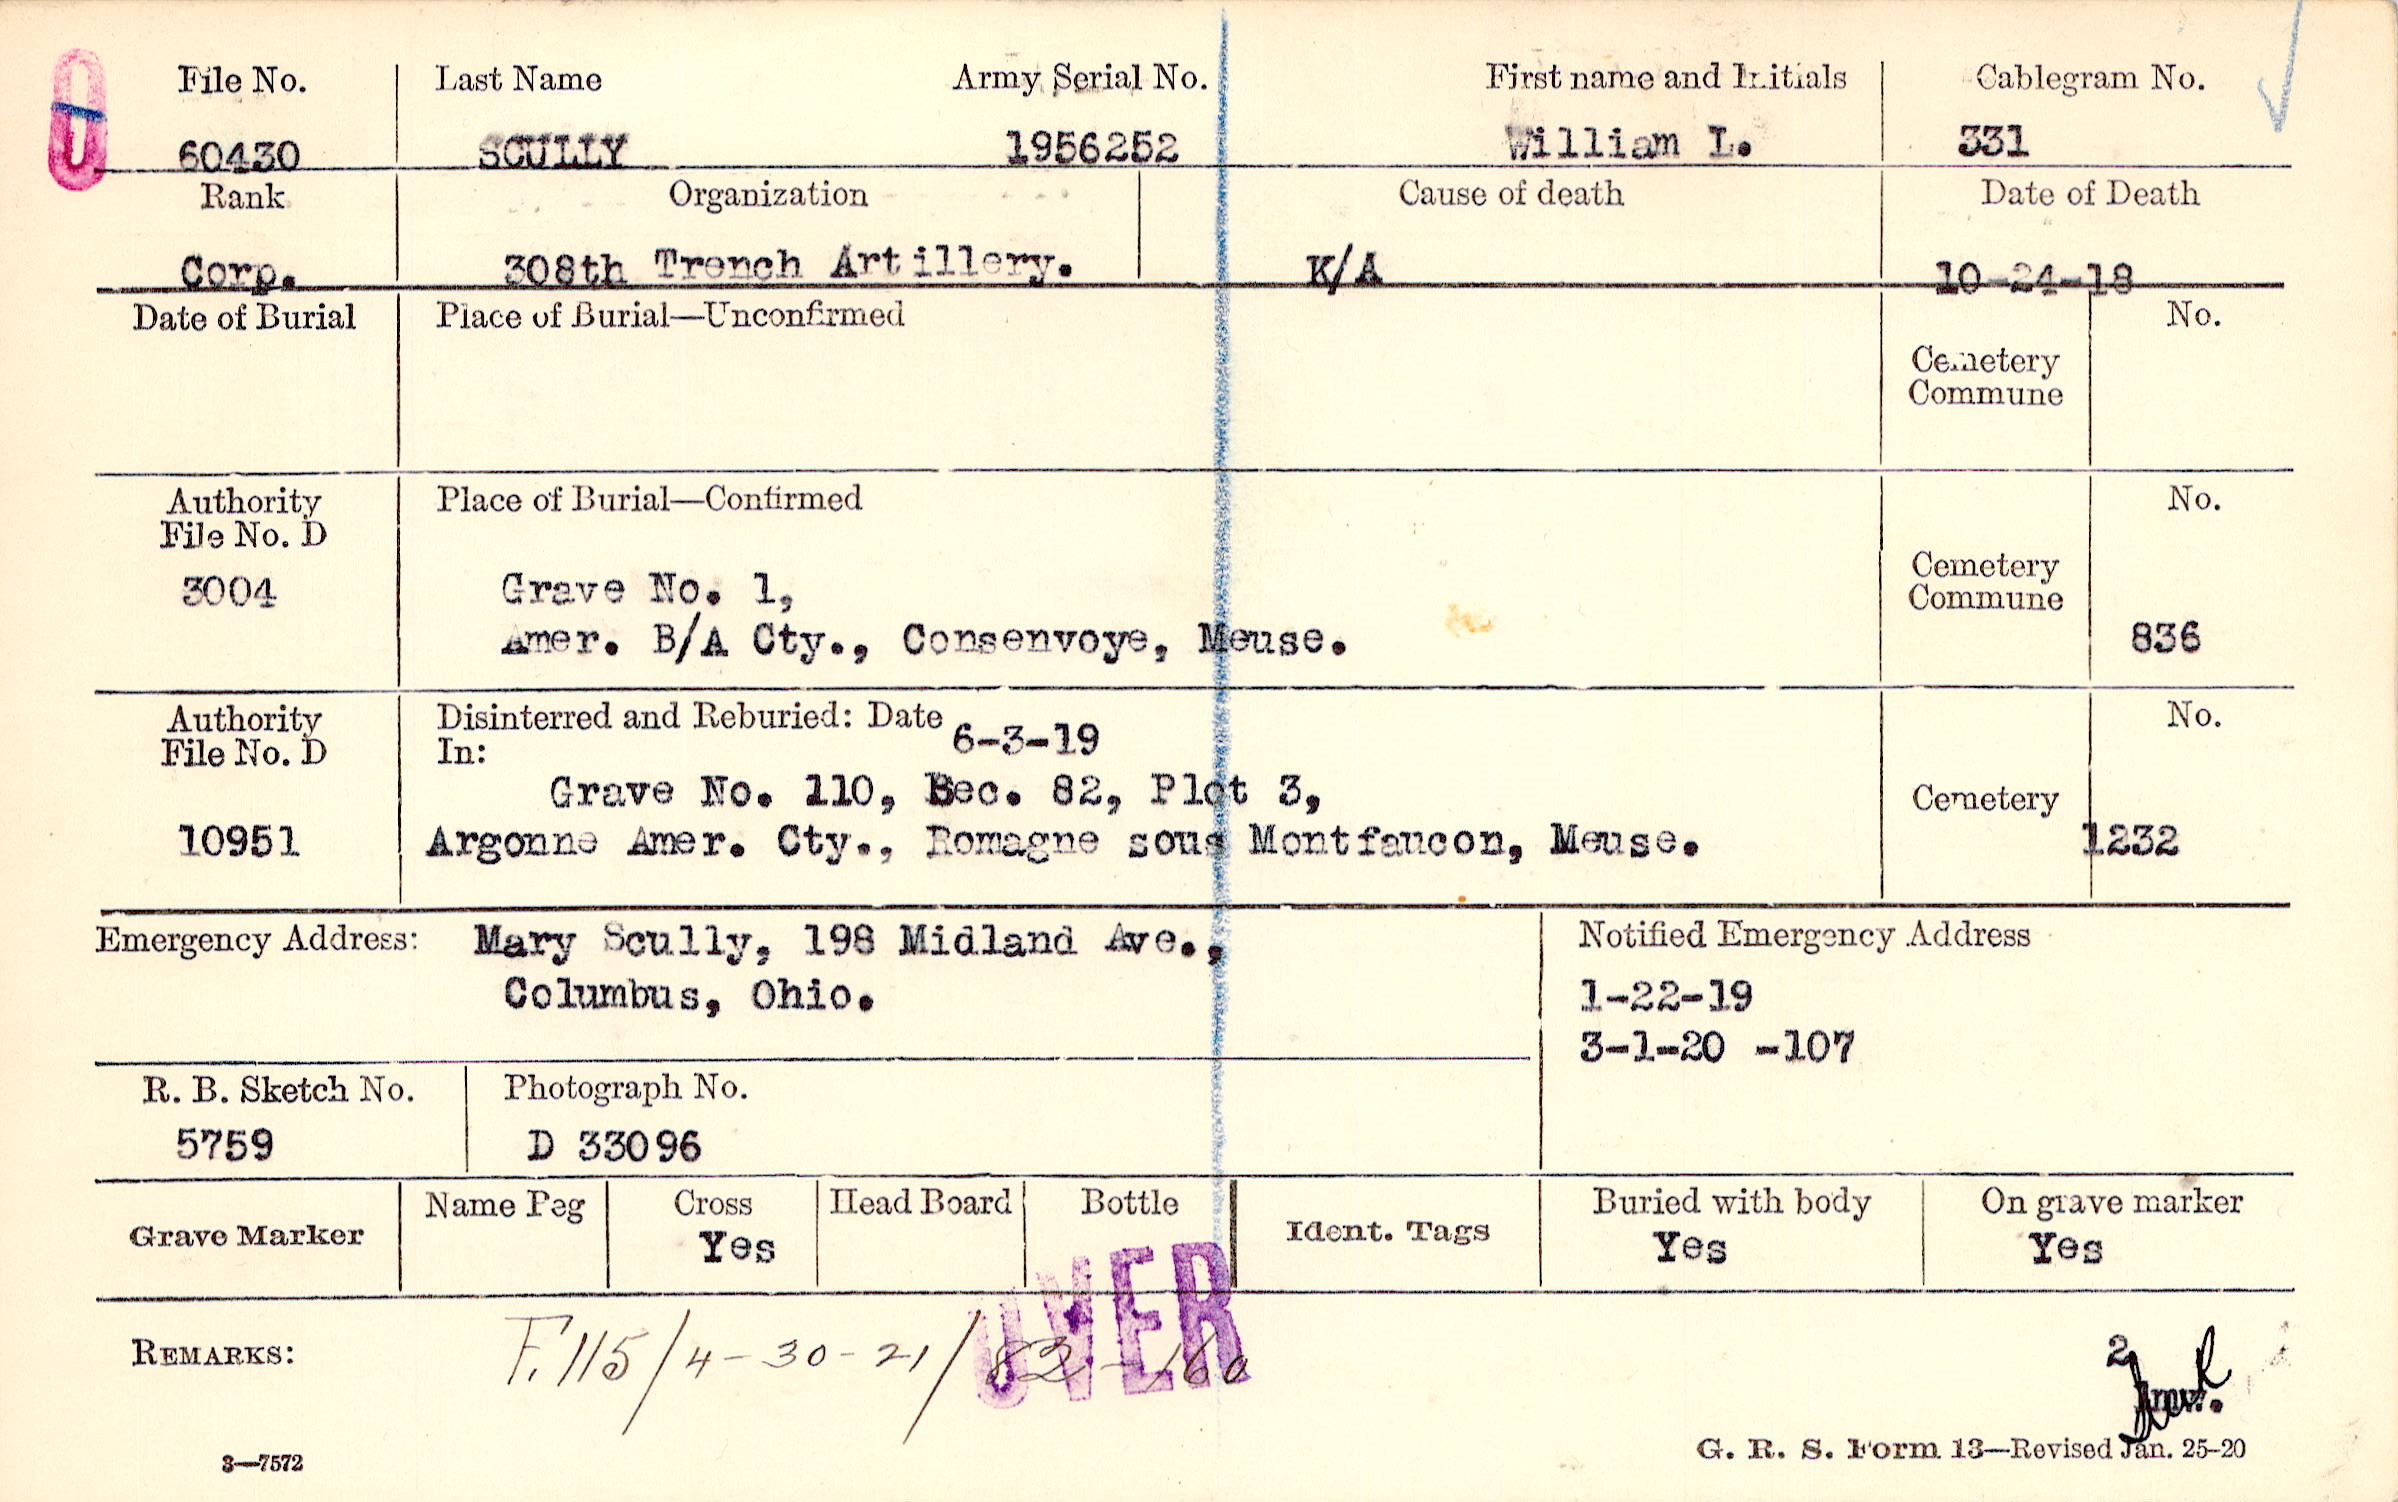 File No. Last Name Army Serial No. First name and Initials Cablegram No.
60430 SCULLY 1956252 William L. 331
Rank Organization Cause of death Date of Death
Corp. 308th Trench Artillery. K/A 10-24-18
Date of Burial Place of Burial—Unconfirmed No.
Cemetery
Commune
Authority Place of Burial—Confirmed No.
File No. D
3004 Grave No. 1, Cemetery
Commune
Amer. B/A Cty., Consenvoye, Meuse. 836
Authority Disinterred and Reburied: Date 6-3-19 No.
File No. D In:
Grave No. 110, Sec. 82, Plot 3, Cemetery
10951 Argonne Amer. Cty., Romagne sous Montfaucon, Meuse. 1232
Emergency Address: Mary Scully, 198 Midland Ave., Notified Emergency Address
Columbus, Ohio. 1-22-19
3-1-20 -107
R. B. Sketch No. Photograph No.
5759 D 33096
Grave Marker Name Peg Cross Head Board Bottle Ident. Tags Buried with body On grave marker
Yes Yes Yes
OVER
REMARKS: F.115/4-30-21/82-160
2
3—7572 G. R. S. Form 13—Revised Jan. 25-20